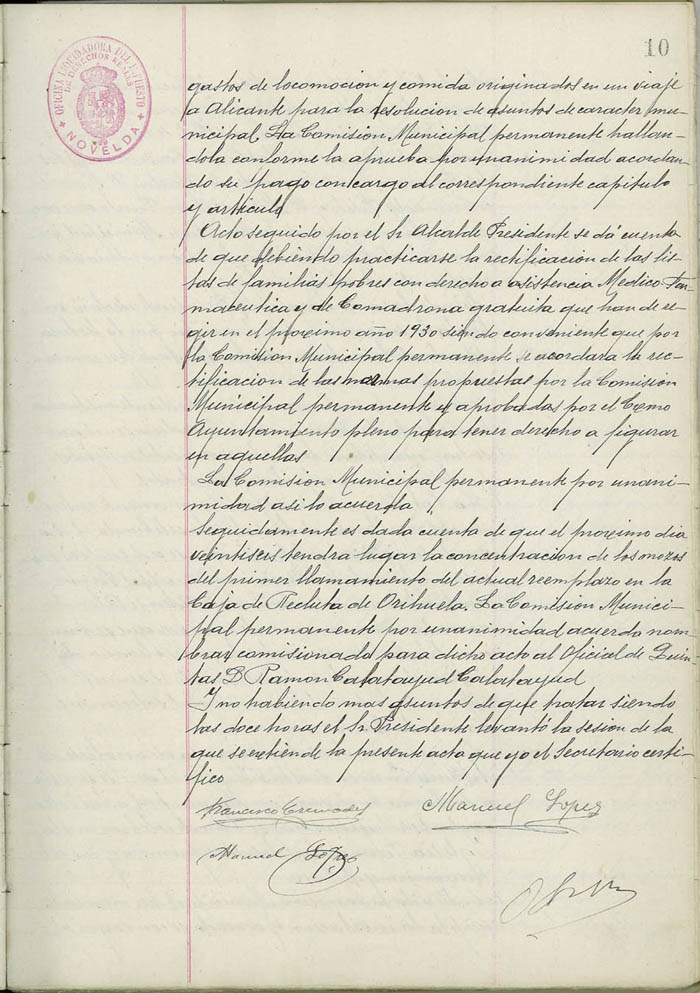 10
OFICINA LIQUIDADORA DEL IMPUESTO
DE DERECHOS REALES
NOVELDA
gastos de locomoción y comida originados en un viaje
a Alicante para la resolucion de asuntos de caracter mu-
nicipal. La Comisión Municipal permanente hallan-
dola conforme la aprueba por unanimidad acordan-
do su pago con cargo al correspondiente capitulo
y articulo
Acto seguido por el Sr Alcalde Presidente se dá cuenta
de que debiendo practicarse la rectificacion de las lis-
tas de familias pobres con derecho a asistencia Medico Far-
maceutica y de Comadrona gratuita que han de re-
gir en el proximo año 1930 siendo conveniente que por
la Comision Municipal permanente se acordara la rec-
tificacion de las normas propuestas por la Comision
Municipal permanente y aprobadas por el Excmo
Ayuntamiento pleno para tener derecho a figurar
en aquellas
La Comision Municipal permanente por unani-
midad asi lo acuerda
Seguidamente es dada cuenta de que el proximo dia
veintiseis tendra lugar la concentracion de los mozos
del primer llamamiento del actual reemplazo en la
Caja de Recluta de Orihuela. La Comision Munici-
pal permanente por unanimidad acuerdo nom-
brar comisionado para dicho acto al Oficial de Quin-
tas D Ramon Calatayud Calatayud
Y no habiendo mas asuntos de que tratar siendo
las doce horas el Sr. Presidente levantó la sesion de la
que se extiende la presente acta que yo el Secretario certi-
fico
Francisco Cremades Manuel Lopez
Manuel Lopez